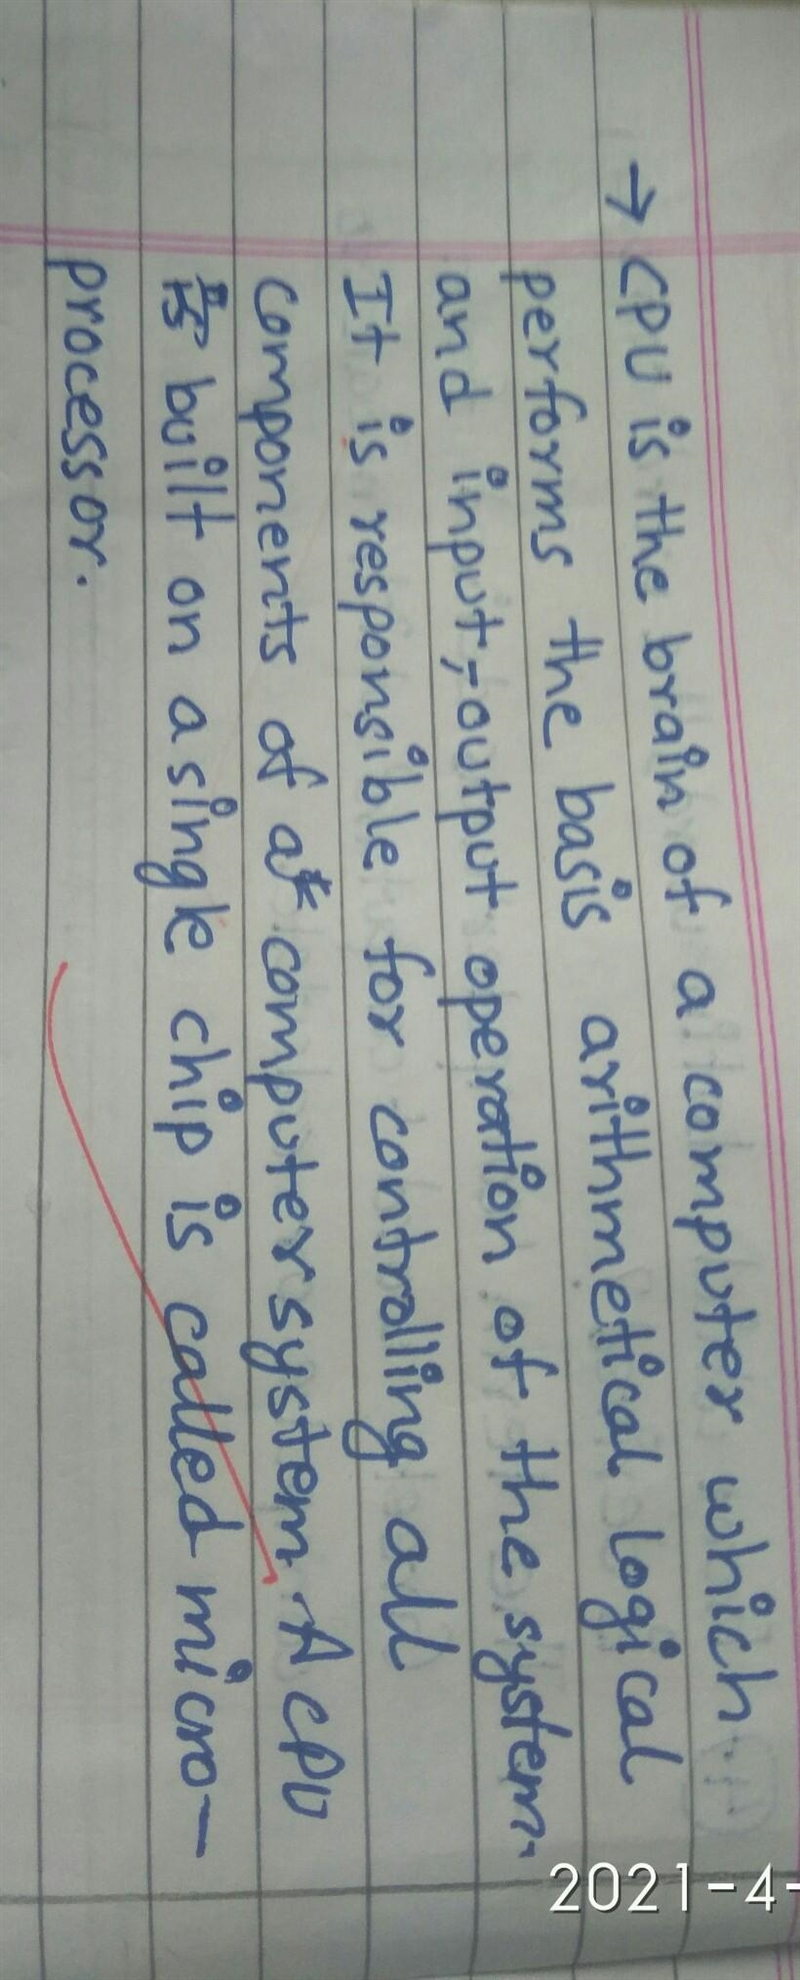 → CPU is the brain of a computer which
performs the basis arithmetical logical
and input,-output operation of the system.
It is responsible for controlling all
components of a computer system. A CPU
is built on a single chip is called micro-
processor.
2021-4-